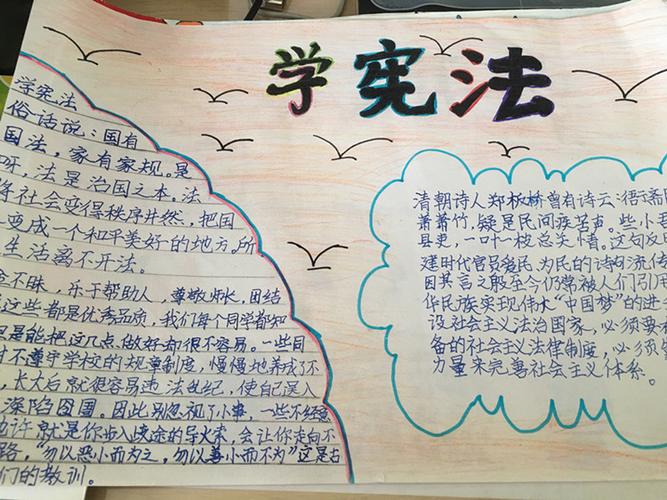 学宪法
学宪法
俗话说：国有
国法，家有家规。是
呀，法是治国之本。法
将社会变得秩序井然，把国
变成一个和平美好的地方。所
生活离不开法。
金不昧，乐于帮助人，尊敬师长，团结
这些都是优秀品质，我们每个同学都知
是能把这几点做好却很不容易。一些同
不遵守学校的规章制度，慢慢地养成了不
，长大后就很容易违法乱纪，使自己误入
深陷囹圄。因此别忽视了小事，一些不经意
许就是你步入歧途的导火索，会让你走向不
路，“勿以恶小而为之，勿以善小而不为”这是古
们的教训。
清朝诗人郑板桥曾有诗云：衙斋
萧萧竹，疑是民间疾苦声。些小
县吏，一叶一枝总关情。这句反
建时代官员爱民、为民的诗句流传
因其言之殷至今仍常被人们引用
华民族实现伟大“中国梦”的进
设社会主义法治国家，必须要
备的社会主义法律制度，必须
力量来完善社会主义体系。